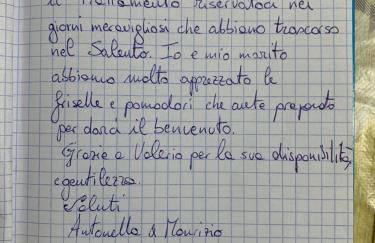 il trattamento riservatoci nei
giorni meravigliosi che abbiamo trascorso
nel Salento. Io e mio marito
abbiamo molto apprezzato le
friselle e pomodori che avete preparato
per darci il benvenuto.
Grazie a Valerio per la sua disponibilità,
e gentilezza.
Saluti
Antonella & Maurizio